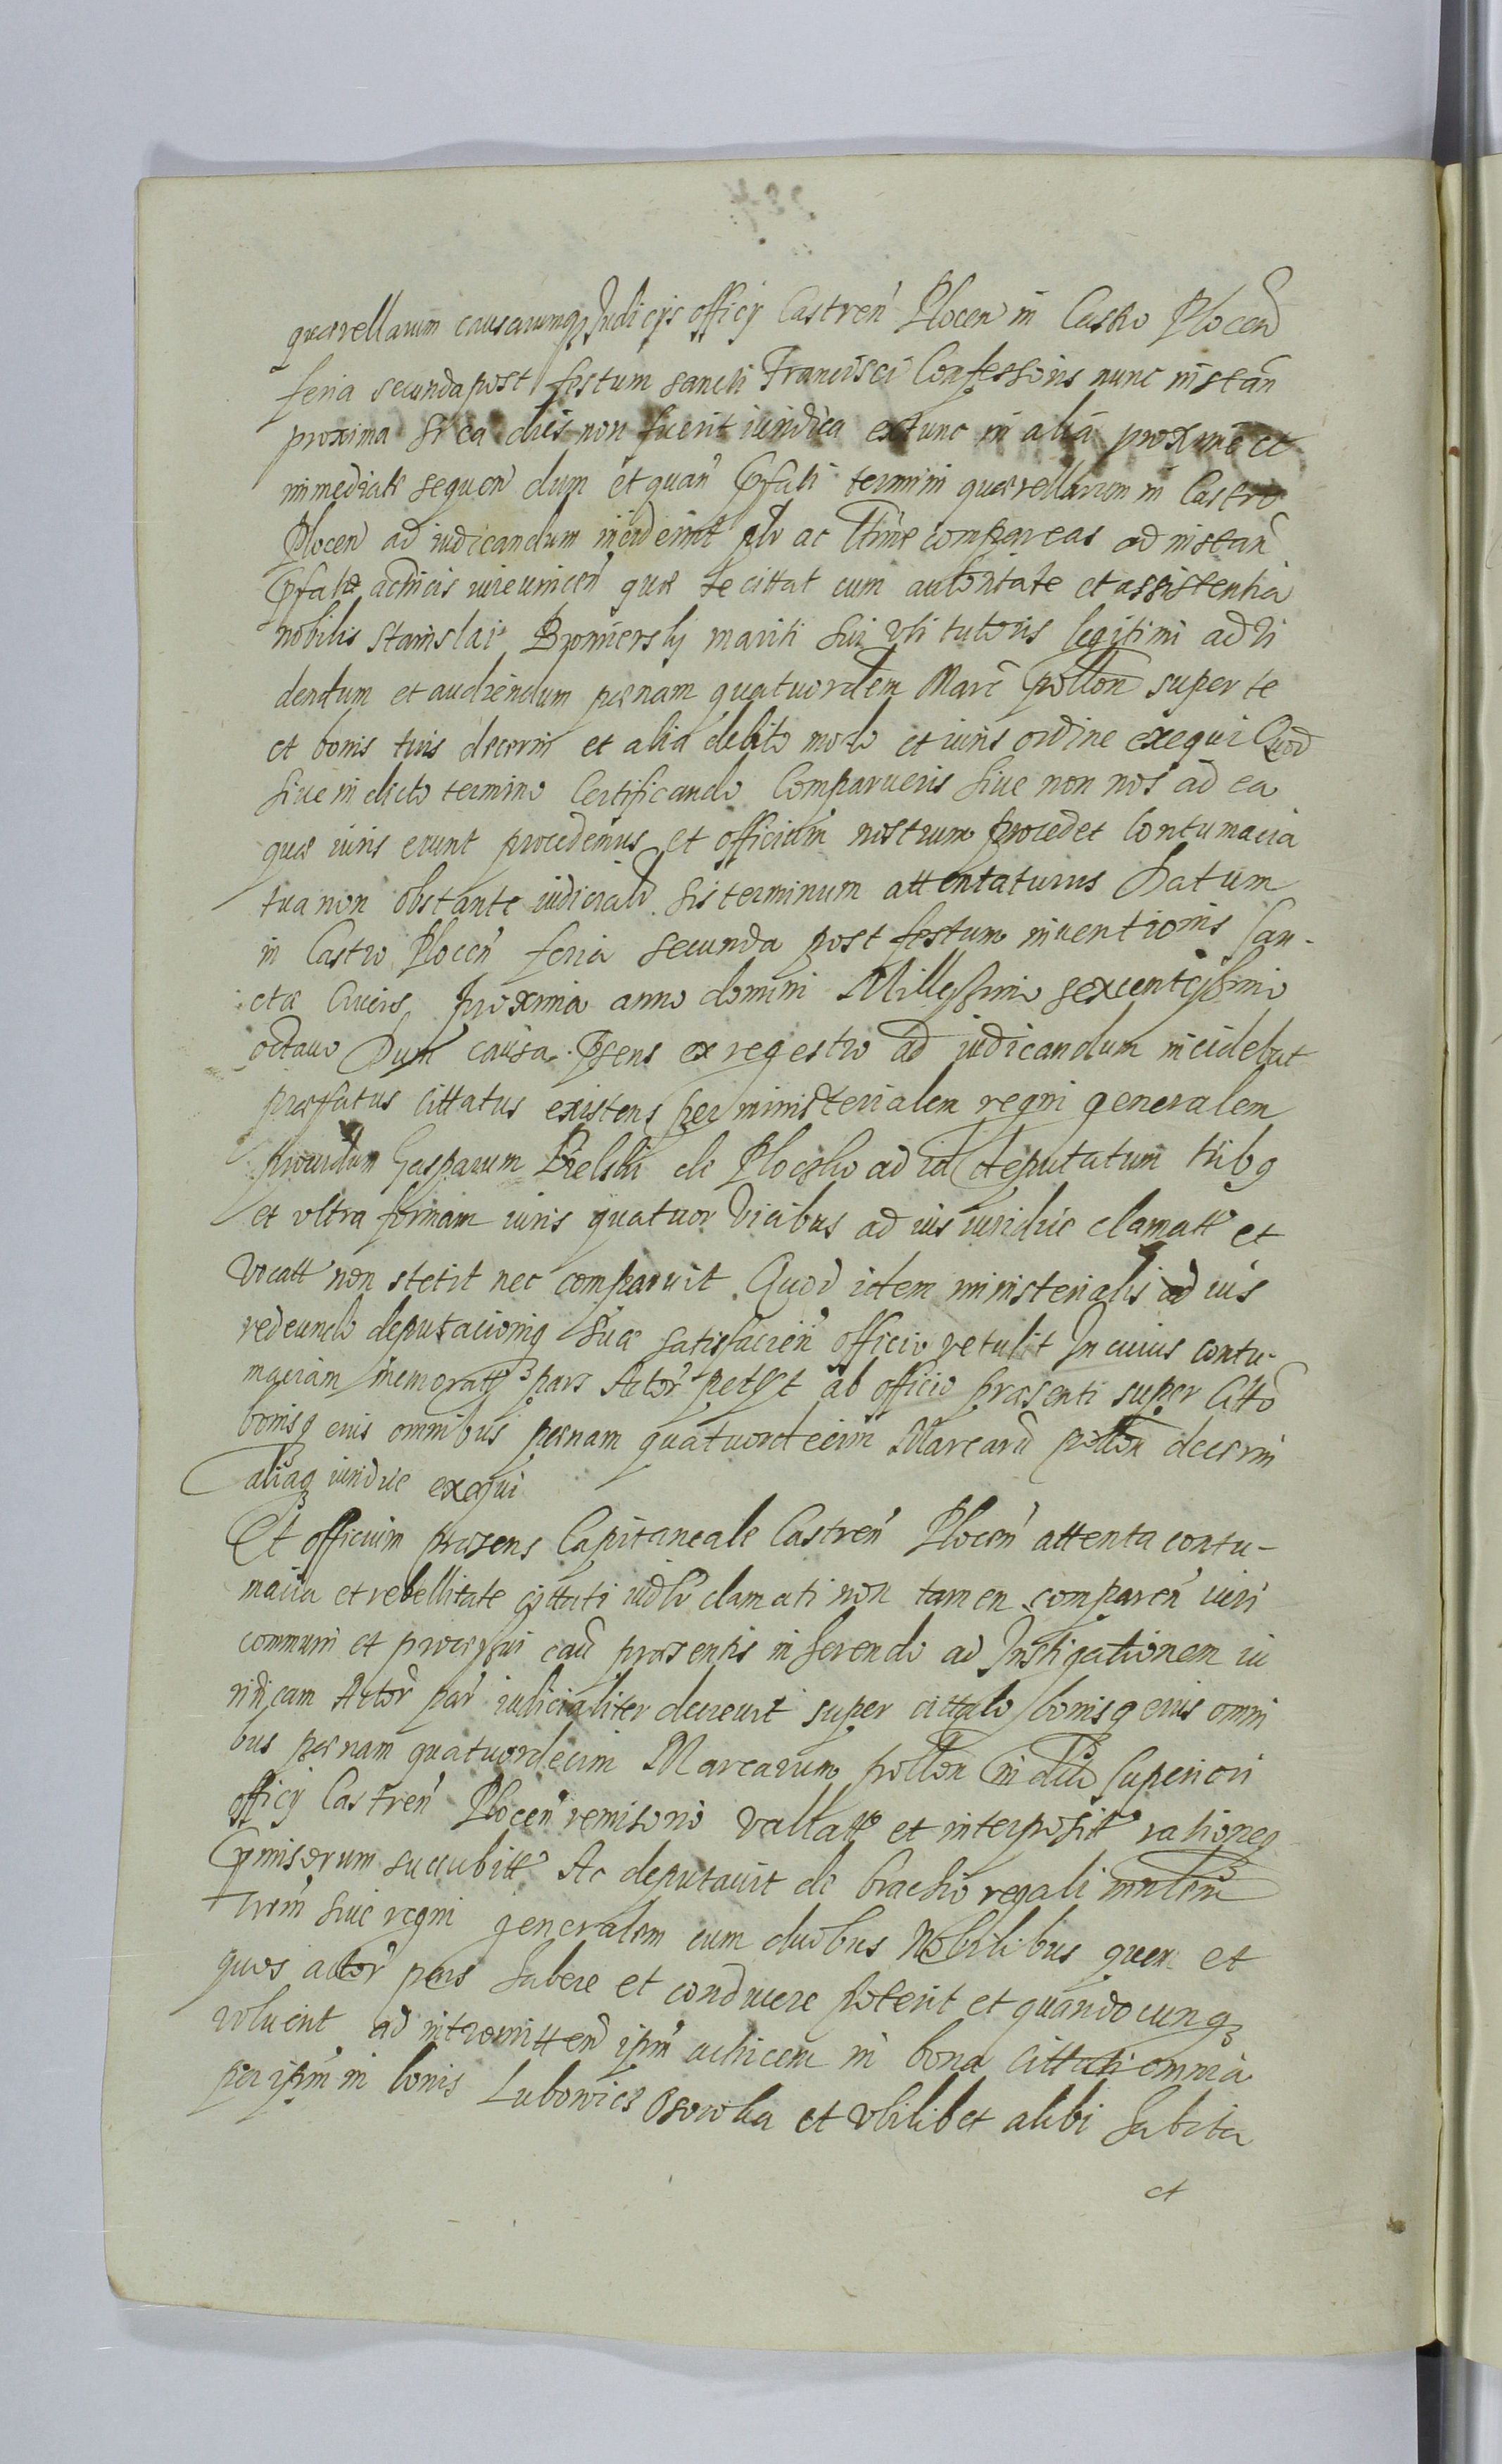 quærellarum causarumq₃ Judicijs officij Castren̄ Plocen̄ in Castro Plocen̄
feria secunda post festum sancti Francisci Confessoris nunc instan̄
proxima si ea dies non fuerit iuridica extunc in aliā proxime et
immediate sequen̄ dum et quan̄ p̄fati termini quærellarum in Castro
Plocen̄ ad iudicandum inciderint plr̄ ac ltime compareas ad instan̄
p̄fatæ actricis iurevincen̄ quæ te cittat cum autoritate et assistentia
nobilis Stanislai Bromierskj mariti sui vti tutoris legitimi ad vi
dendum et audiendum pœnam quatuordem Marc̄ pollon̄ super te
et bonis tuis decerni et alia debito modo et iuris ordine exequi Quod
siue in dicto termino Certificando Comparueris siue non nos ad ea
quæ iuris erunt procedemus et officium nostrum procedet Contumacia
tua non obstante iudicialr̄ sis terminum attentaturus Datum
in Castro Plocen̄ feria secunda post festum inuentionis San-
ctæ Crucis proxima anno domini Millesimo sexcentesimo
octauo Dum causa p̄sens ex regestro ad iudicandum incidebat
præfatus Cittatus existens per ministerialem regni generalem
prouidum Gasparum Bielski de Ploczko ad id deputatum trib9
et vltra formam iuris quatuor vicibus ad ius iuridice clamatt9 et
vocatt9 non stetit nec comparuit Quod idem ministerialis ad ius
redeundo deputacionis suæ satisfacien̄ officio retulit In cuius contu-
maciam memoratt pars Actor̄ petyt ab officio præsenti super Citto
bonisq eius omnibus pœnam quatuordecim Marcaru̅ pollon̄ decerni
aliaq₃ iuridice exequi
Et officium præsens Capitaneale Castren̄ Plocen̄ attenta contu-
macia et rebellitate cittati iudlr̄ clamati non tamen comparen̄ iuri
communi et processui cau̅ præsentis inserendo ad Instigationem iu
ridicam Actor̄ par̄ iudicialiter decreuit super cittato bonisq eius omni
bus pœnam quatuordecim Marcarum pollon̄ Superiori
officij Castren̄ Plocen̄ remissorio vallatt et interposit rationeq
p̄missorum succubitt Ac deputauit de brachio regali
Trem̄ siue regni generalem cum duobus Nobilibus quem et
quos actor̄ pars habere et conducere poterit et quandocunq₃
voluerit ad intromitten̄ ipm̄ actricem in bona cittati omnia
per ipm̄ in bonis Lubowice Osowka et vbilibet alibi habita
et